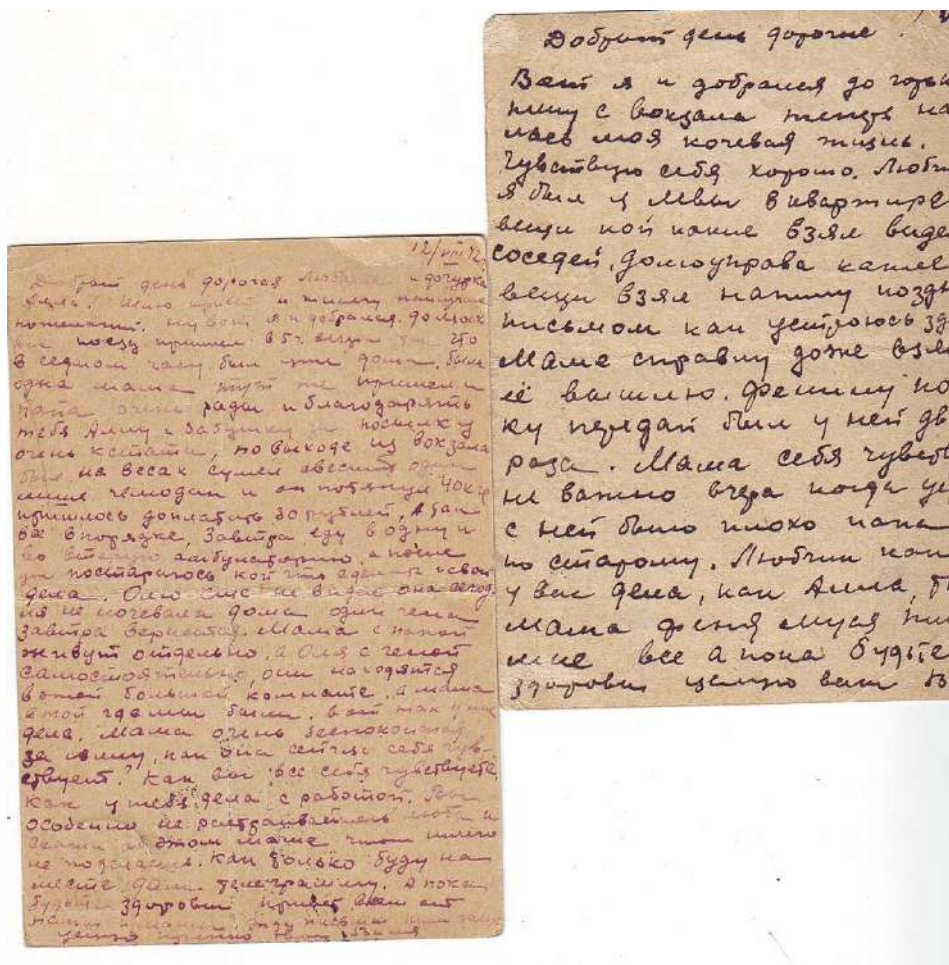 12/VIII 42.
Добрый день дорогая и дочурка
Алла! Шлю привет и наилучшие
пожелания. Ну вот я и добрался до
поезд пришел в 5 ч. так что
в седьмом часу был уже дома. была
одна мама тут же пришел и
папа очень рады и благодарят
тебя Аллу и бабушку за посылку
очень кстати, по выходе из вокзала
был на весах сумел один
чемодан и он потянул 40 кг
пришлось доплатить 30 рублей, а так
все в порядке, Завтра еду в одну и
во вторую амбулаторию а после
уж постараюсь кой что сделать свои
дела. Олю ещё не видел она сегод
ня не ночевала дома
завтра вернется. Мама с папой
живут отдельно, а Оля с Геной
самостоятельно, они находятся
в этой большой комнате, а мама
в той где мы были. вот так у них
дела. Мама очень
за Аллу, как она сейчас себя чув-
ствует? Как вы все себя чувствуете,
как у тебя дела с работой. Ты
особенно не Люба и
скажи об этом маме ничего
не поделаешь. Как только буду на
месте дам телеграмму. А пока
будьте здоровы привет вам от
жду письма
целую крепко
Добрый день дорогие.
Вот я и добрался до
пишу с вокзала теперь на
лась моя кочевая жизнь.
Чувствую себя хорошо. Любч
я был у в квартире
вещи кой какие взял виде
соседей, домоуправа какие
вещи взял напишу поздн
письмом как устроюсь зд
Маме справку тоже взял
её вышлю. по
ку передал был у ней дв
раза. Мама себя чувств
не важно вчера когда у
с ней было плохо папа
по старому. Любчик как
у вас дела, как Алла,
мама Феня Муся
мне все а пока будьте
здоровы целую вам